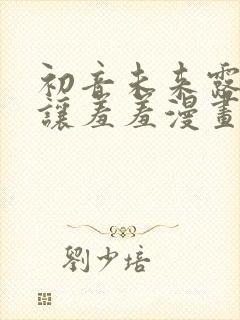 初音未来露
讓羞羞漫畫
劉少培